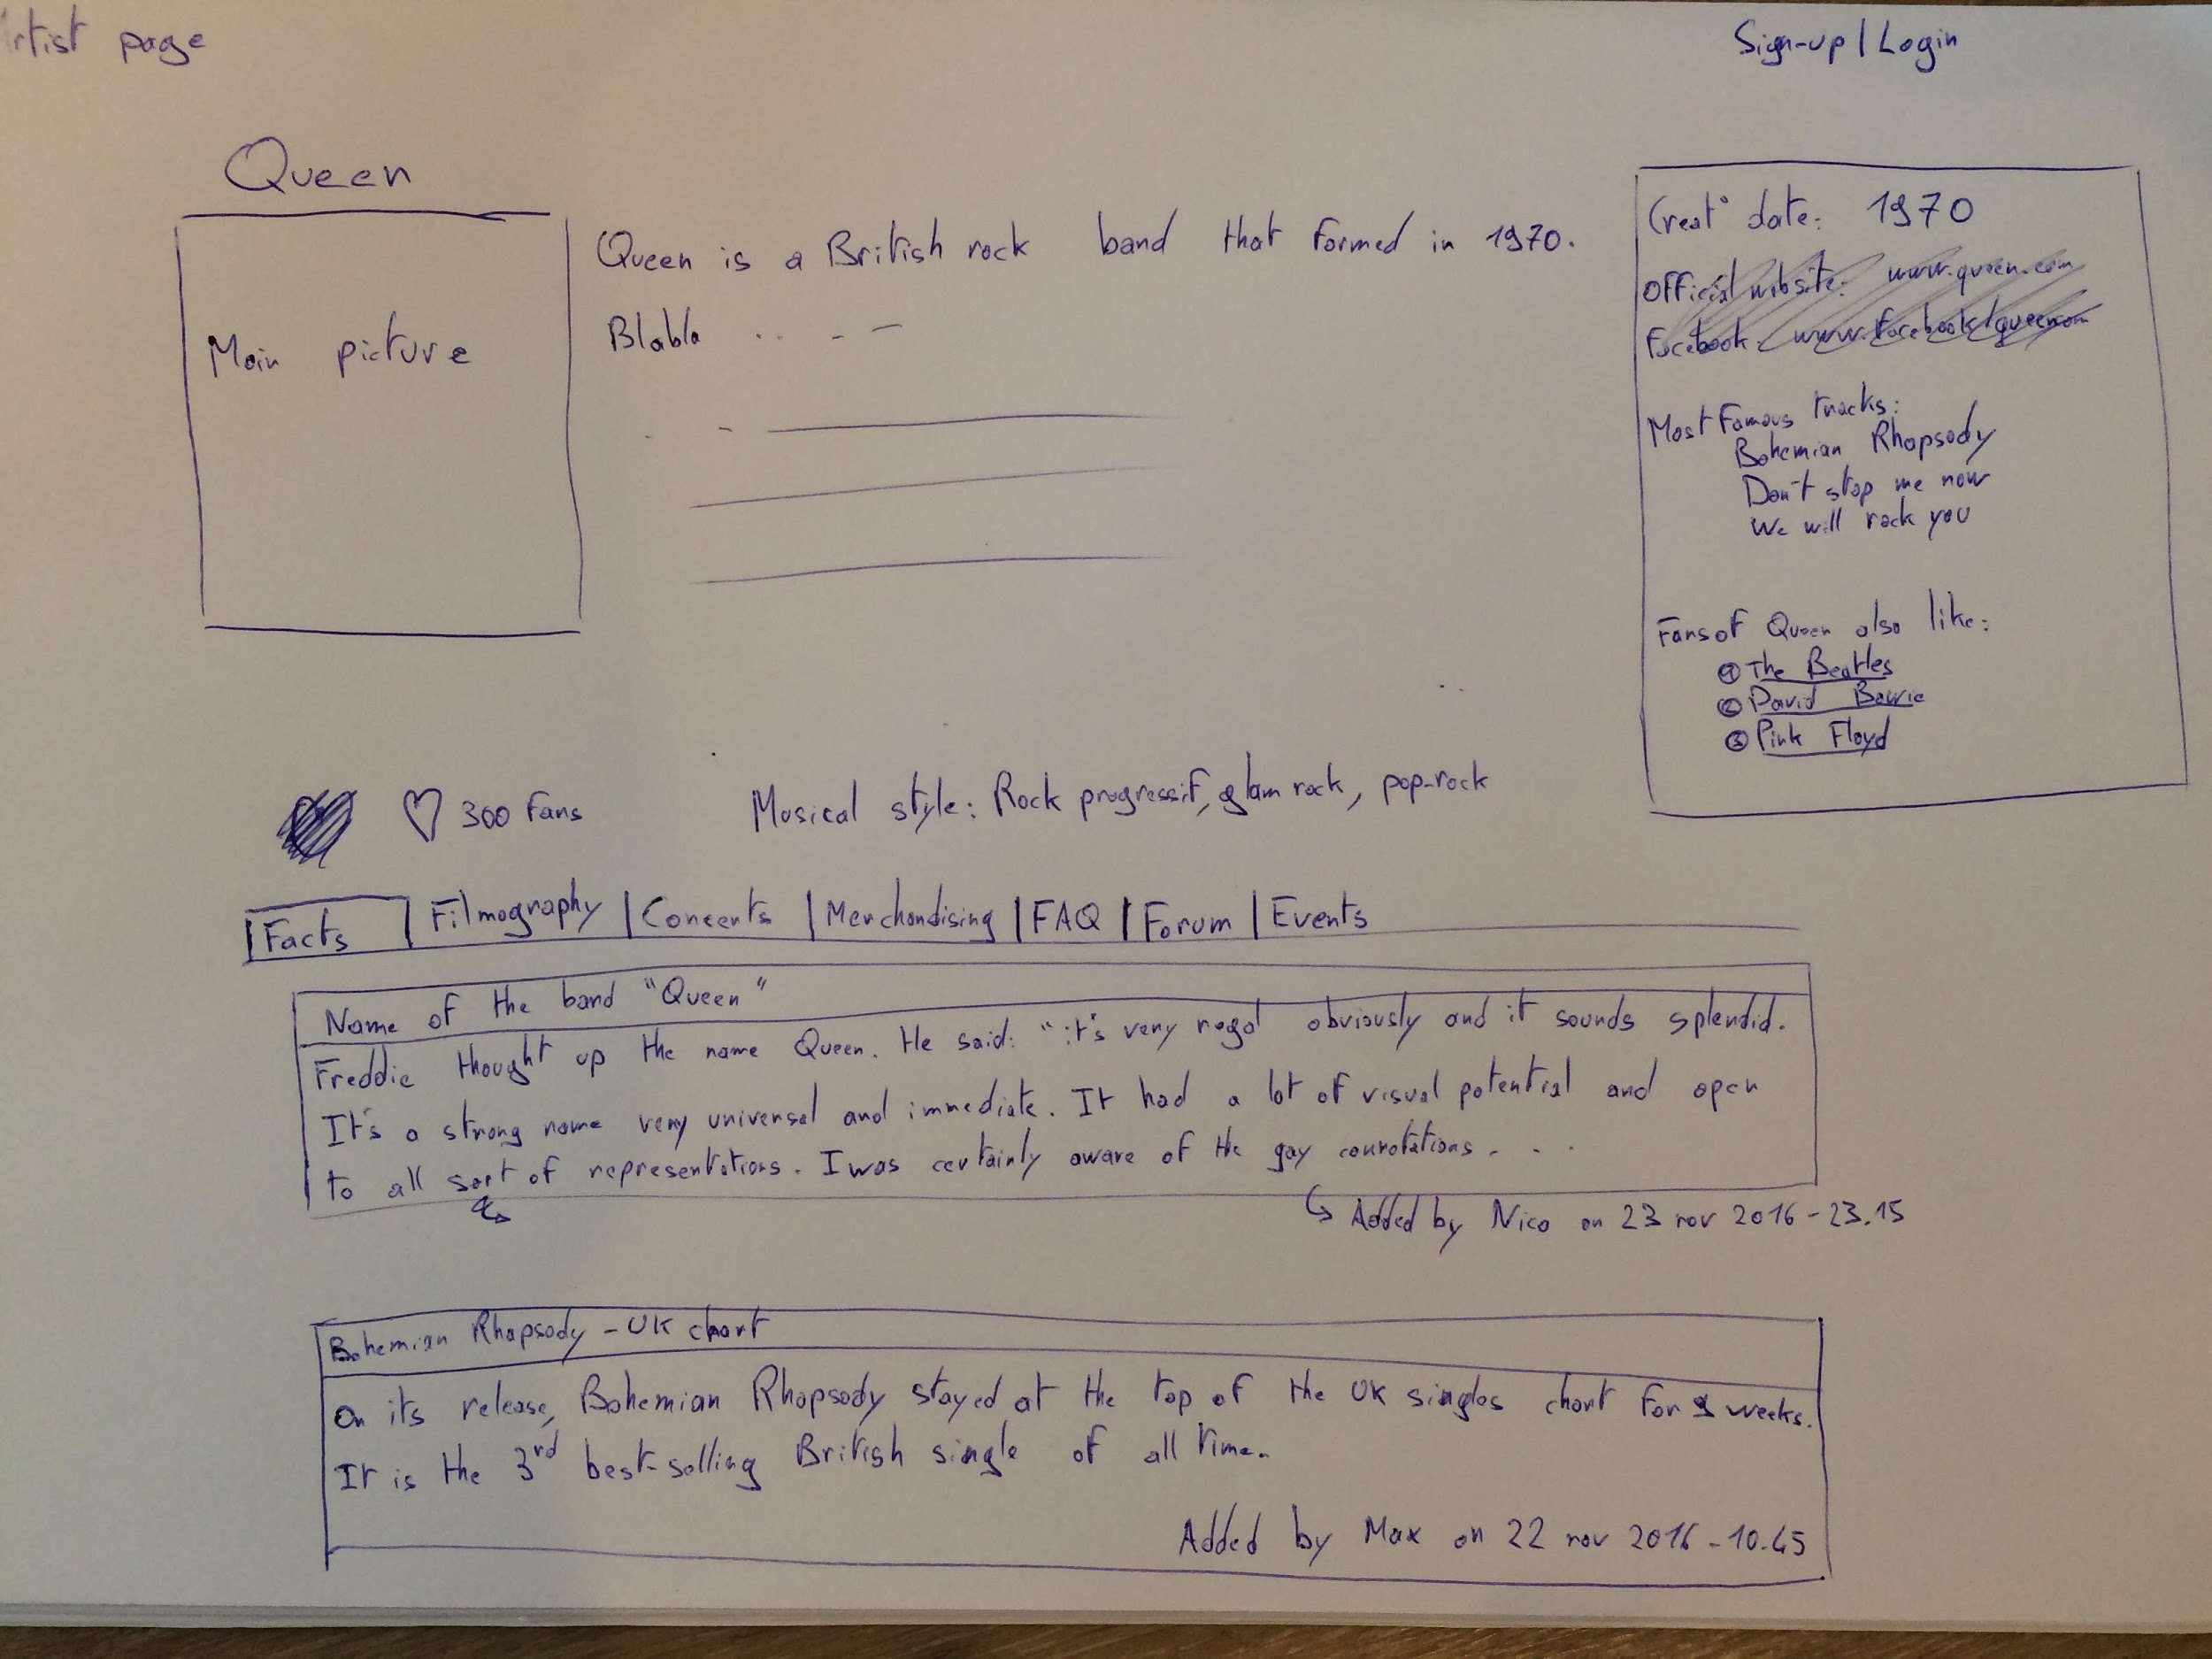 Artist page
Sign-up | Login
Queen
Main picture
Queen is a British rock band that formed in 1970.
Blabla
Creat° date: 1970
Official website: www.queen.com
Facebook: www.facebook/queencom
Most Famous tracks:
Bohemian Rhapsody
Don't stop me now
We will rock you
Fans of Queen also like:
① The Beatles
② David Bowie
③ Pink Floyd
♡ 300 Fans
Musical style: Rock progressif, glam rock, pop-rock
Facts | Filmography | Concerts | Merchandising | FAQ | Forum | Events
Name of the band "Queen"
Freddie thought up the name Queen. He said: "it's very regal obviously and it sounds splendid.
It's a strong name very universal and immediate. It had a lot of visual potential and open
to all sort of representations. I was certainly aware of the gay connotations...
↳ Added by Nico on 23 nov 2016 - 23.15
Bohemian Rhapsody - UK chart
On its release, Bohemian Rhapsody stayed at the top of the UK singles chart for 9 weeks.
It is the 3rd best-selling British single of all time.
Added by Max on 22 nov 2016 - 10.45